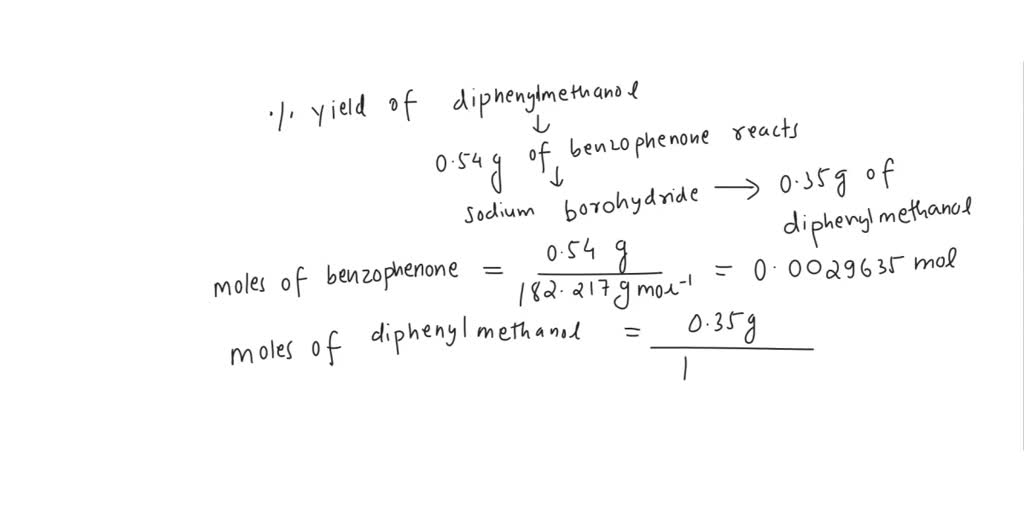 ·/· yield of diphenylmethanol
↓
0.54 g of benzophenone reacts
↓
sodium borohydride → 0.35 g of
diphenylmethanol
moles of benzophenone = 0.54 g / 182.217 g mol⁻¹ = 0.0029635 mol
moles of diphenylmethanol = 0.35g / 1